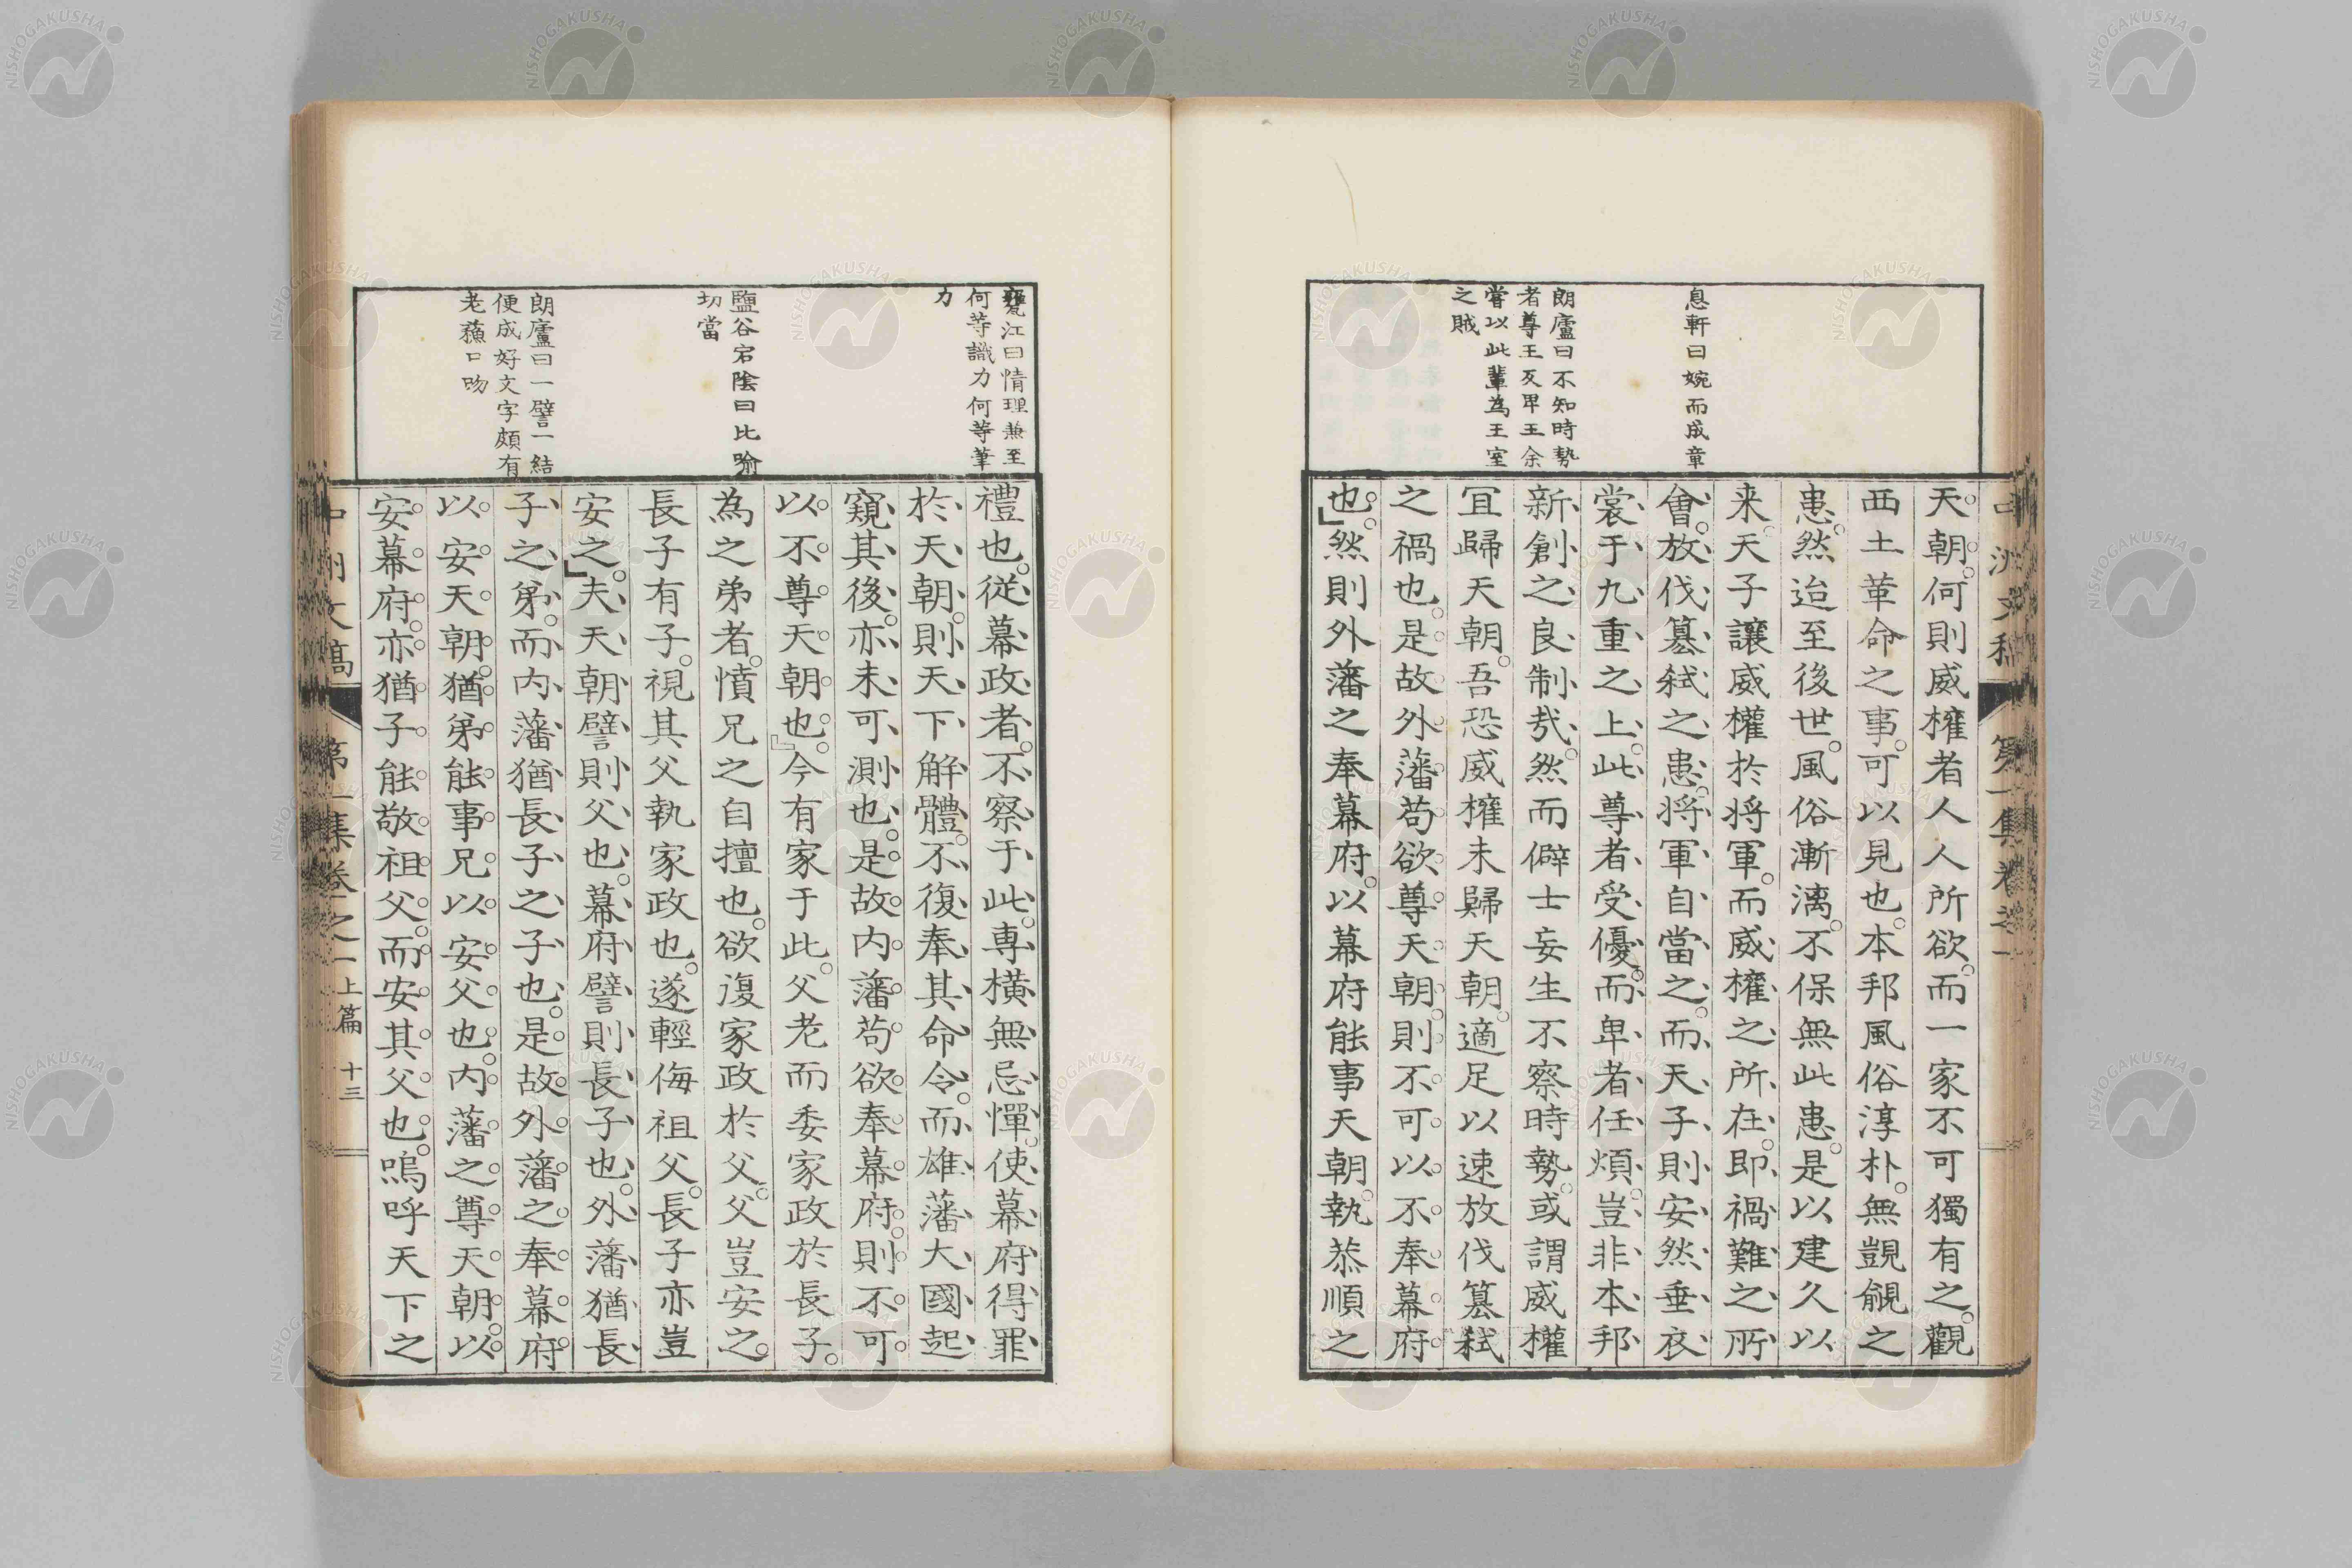 息軒曰婉而成章
朗廬曰不知時勢
者尊王反卑王余
嘗以此輩為王室
之賊
天朝。何則威權者人人所欲。而一家不可獨有之。觀
西土革命之事。可以見也。本邦風俗淳朴。無覬覦之
患。然迨至後世。風俗漸漓。不保無此患。是以建久以
来。天子讓威權於将軍。而威權之所在。即禍難之所
會。放伐篡弑之患。将軍自當之。而天子則安然垂衣
裳于九重之上。此尊者受優。而卑者任煩。豈非本邦
新創之良制㢤。然而僻士妄生不察時勢。或謂威權
冝歸天朝。吾恐威權未歸天朝。適足以速放伐篡弑
之禍也。是故外藩苟欲尊天朝。則不可以不奉幕府
也。然則外藩之奉幕府。以幕府能事天朝。執恭順之
第一集卷之一
甕江曰情理兼至
何等識力何等筆
力
鹽谷宕陰曰比喻
切當
朗廬曰一譬一結
便成好文字頗有
老蘓口吻
禮也。從幕政者。不察于此。専橫無忌憚。使幕府得罪
於天朝。則天下解體。不復奉其命令。而雄藩大國起
窺其後。亦未可測也。是故内藩苟欲奉幕府。則不可
以不尊天朝也。今有家于此。父老而委家政於長子。
為之弟者。憤兄之自擅也。欲復家政於父。父豈安之。
長子有子。視其父執家政也。遂輕侮祖父。長子亦豈
安之。夫天朝譬則父也。幕府譬則長子也。外藩猶長
子之弟。而内藩猶長子之子也。是故外藩之奉幕府。
以安天朝。猶弟能事兄。以安父也。内藩之尊天朝。以
安幕府。亦猶子能敬祖父。而安其父也。嗚呼天下之
中洲文稿 第一集卷之一 上篇 十三
NISHOGAKUSHA